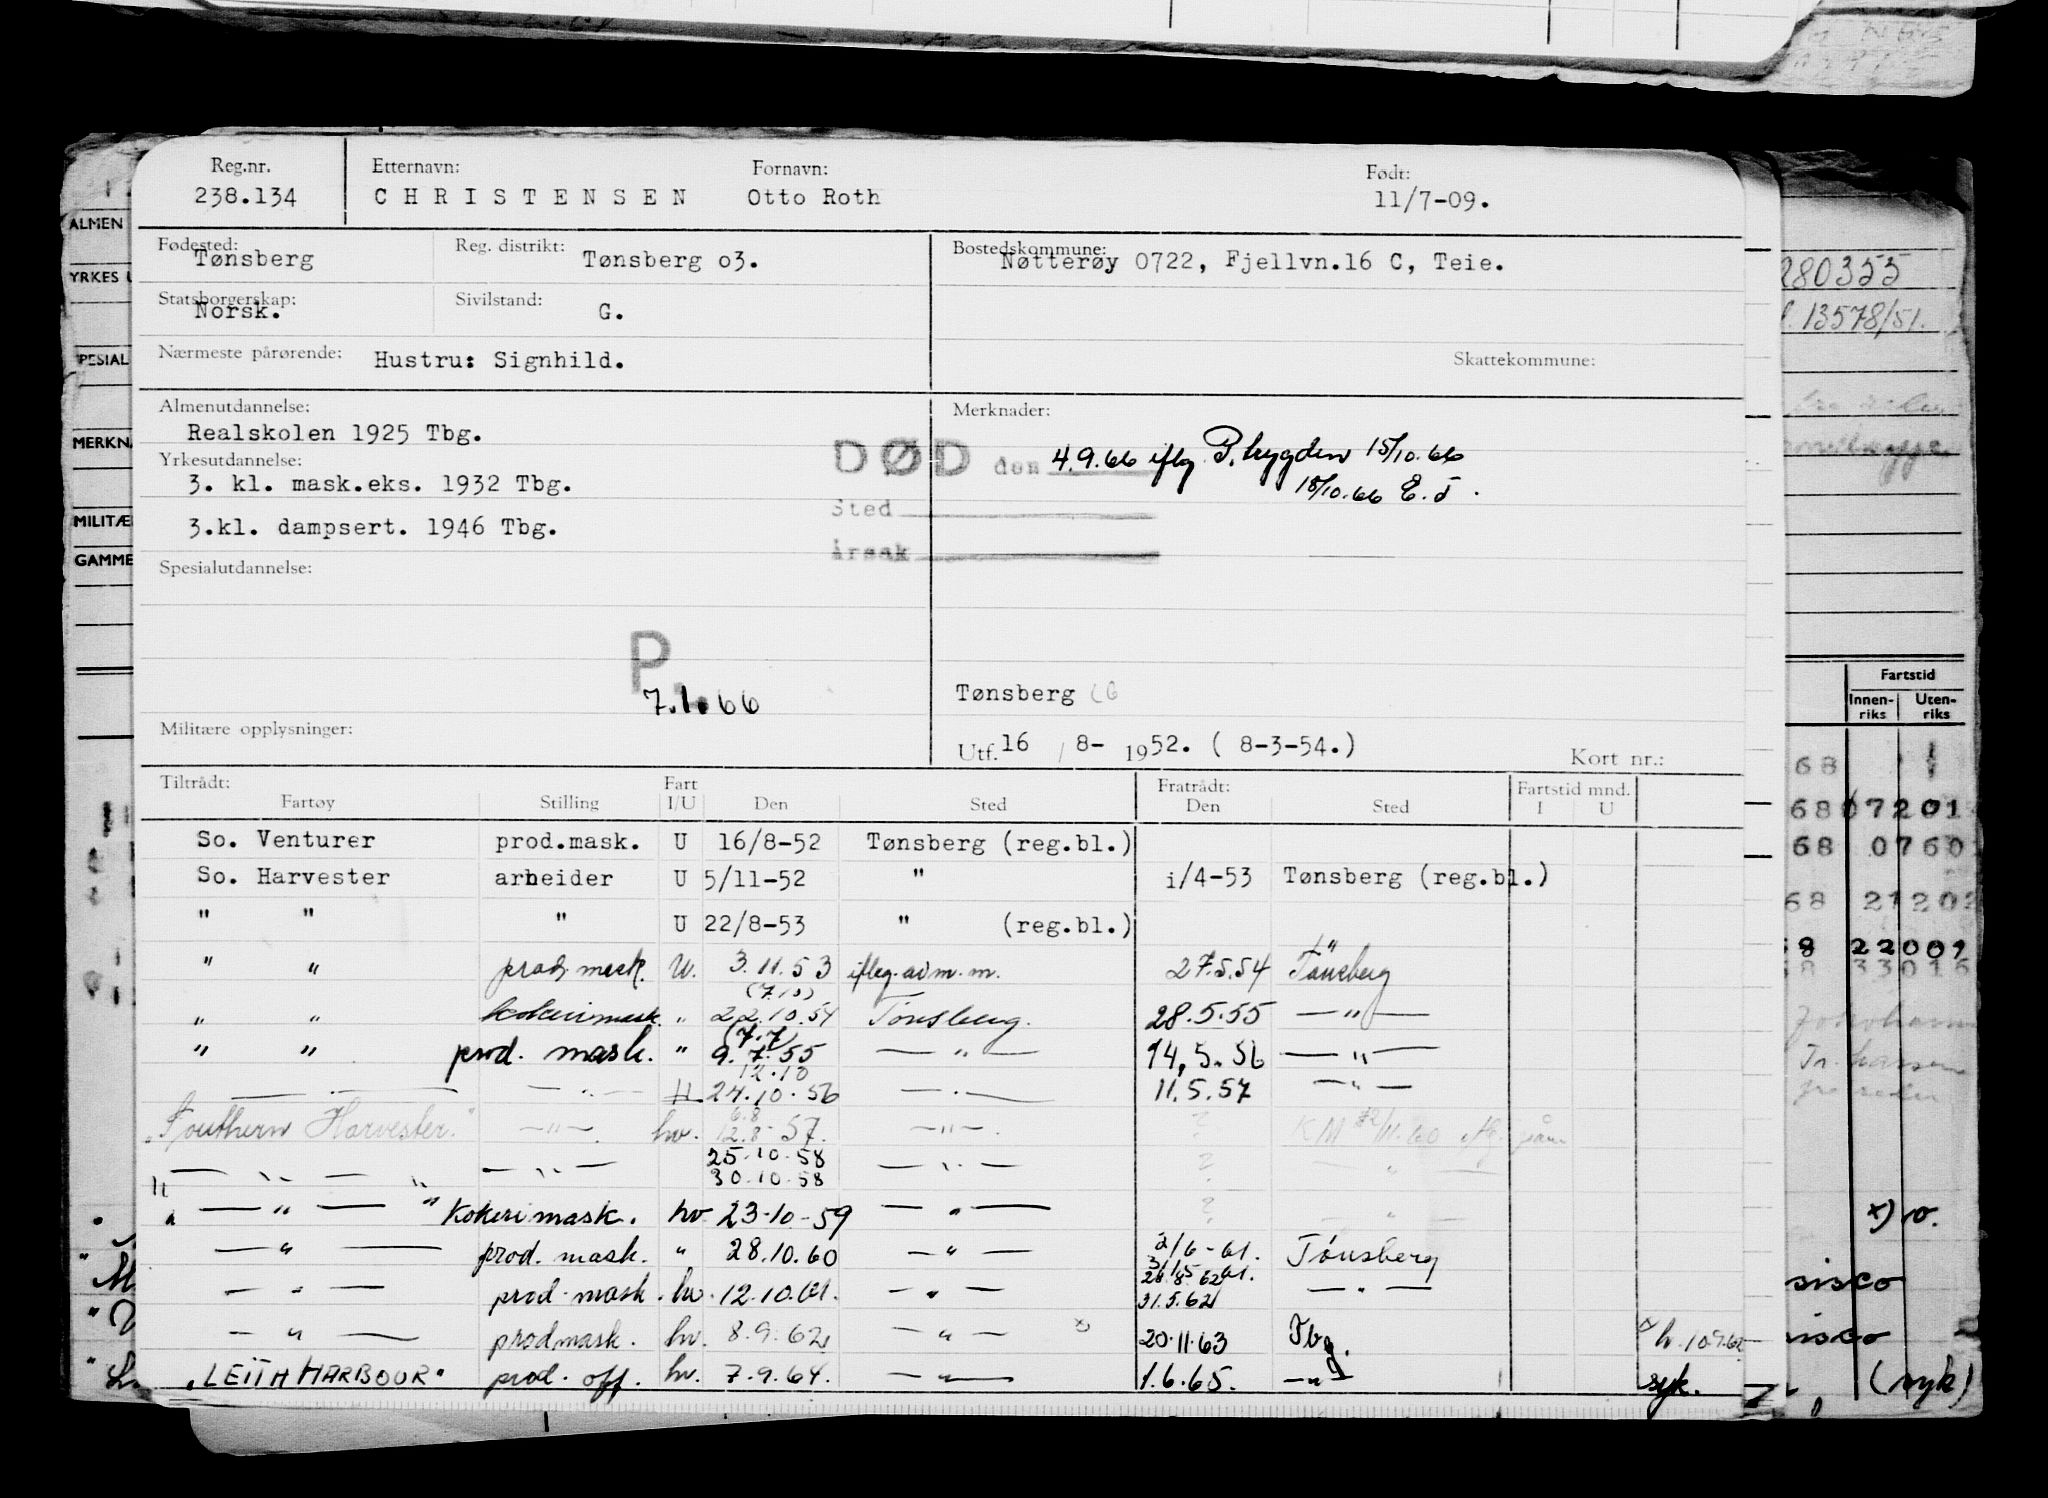 Reg.nr. Etternavn: Fornavn: Født:
238.134 CHRISTENSEN Otto Roth 11/7-09.
Fødested: Reg. distrikt: Bostedskommune:
Tønsberg Tønsberg o3. Nøtterøy 0722, Fjellvn.16 C, Teie.
Statsborgerskap: Sivilstand:
Norsk. G.
Nærmeste pårørende: Hustru: Signhild. Skattekommune:
Almenutdannelse: Merknader:
Realskolen 1925 Tbg.
DØD den 4.9.66 iflg P.trygden 15/10.66
Yrkesutdannelse:
3. kl. mask.eks. 1932 Tbg. 18/10.66 E.J.
Sted
3.kl. dampsert. 1946 Tbg.
årsak
Spesialutdannelse:
P.
7.1.66
Tønsberg
Militære opplysninger:
Utf. 16 / 8- 1952. ( 8-3-54.) Kort nr.:
Tiltrådt: Fart Fratrådt: Fartstid mnd.
Fartøy Stilling I/U Den Sted Den Sted I U
So. Venturer prod.mask. U 16/8-52 Tønsberg (reg.bl.)
So. Harvester arbeider U 5/11-52 " i/4-53 Tønsberg (reg.bl.)
" " " U 22/8-53 " (reg.bl.)
" " prod. mask. U. 3.11.53 27.5.54 Tönsberg
(7.10)
" " kokerimask. " 22.10.54 Tønsberg. 28.5.55 — " —
(7.7)
" " prod. mask. " 9.7.55 — " — 14.5.56 — " —
12.10
24.10.56 11.5.57 — " —
6.8
"Southern Harvester" — " — hv. 12.8-57. — " — ?
25.10.58
30.10.58 — " — ?
— " — Kokerimask. hv 23-10-59 — " — ?
— " — prod. mask. " 28.10.60 — " — 2/6-61. Tønsberg
— " — prod. mask. hv. 12.10.61. — " — 31.5.62 — " —
— " — prodmask. hv. 8.9.62 — " — x) 20.11.63 Tbg.
"LEITH HARBOUR" prod. off. hv. 7.9.64. — " — 1.6.65. — " — syk.
ALMEN
YRKES
MERKN
GAMME
280355
13578/51.
Fartstid
Innen-riks Uten-riks
68
68 07201
68 0760
68
22001
33016
x) 10.
sisco
(syk)